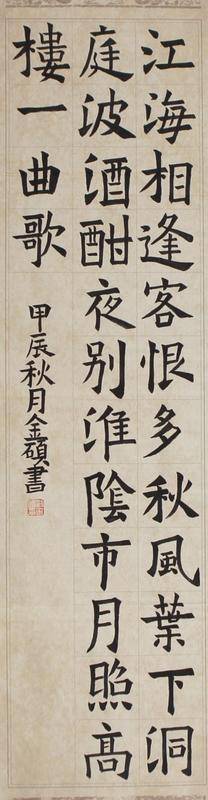 江海相逢客恨多秋風葉下洞
庭波酒酣夜别淮陰市月照高
樓一曲歌
甲辰秋月金碩書